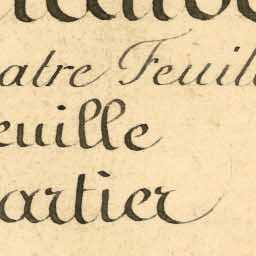 atre Feuill
euille
artier